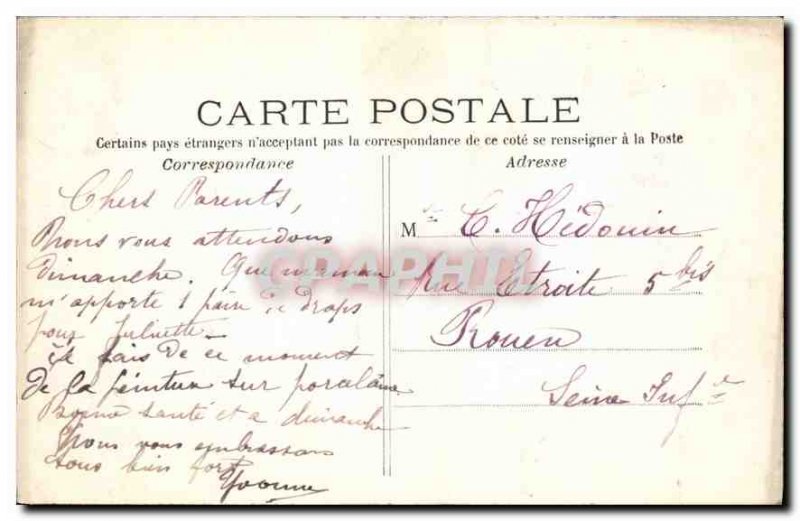 CARTE POSTALE
Certains pays étrangers n'acceptant pas la correspondance de ce coté se renseigner à la Poste
Correspondance
Chers Parents,
Nous vous attendons
dimanche. Que maman
m'apporte 1 paire de draps
pour Juliette.
Je fais de ce moment
de la peinture sur porcelaine
Bonne santé et a dimanche
Nous vous embrassons
tous bien fort
Yvonne
Adresse
M C. Hédouin
Rue Etroite 5 bis
Rouen
Seine Infre